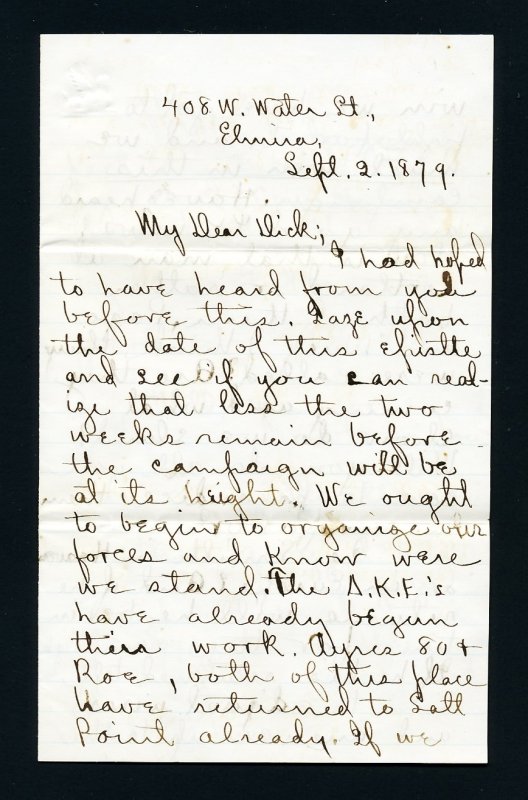 408 W. Water St.,
Elmira,
Sept. 2. 1879.
My Dear Dick;
I had hoped
to have heard from you
before this. Gaze upon
the date of this epistle
and see if you can real-
ize that less the two
weeks remain before
the campaign will be
at its height. We ought
to begin to organize our
forces and know were
we stand. The D.K.E.'s
have already begun
their work. Ayres 80 +
Roe, both of this place
have returned to Salt
Point already. If we